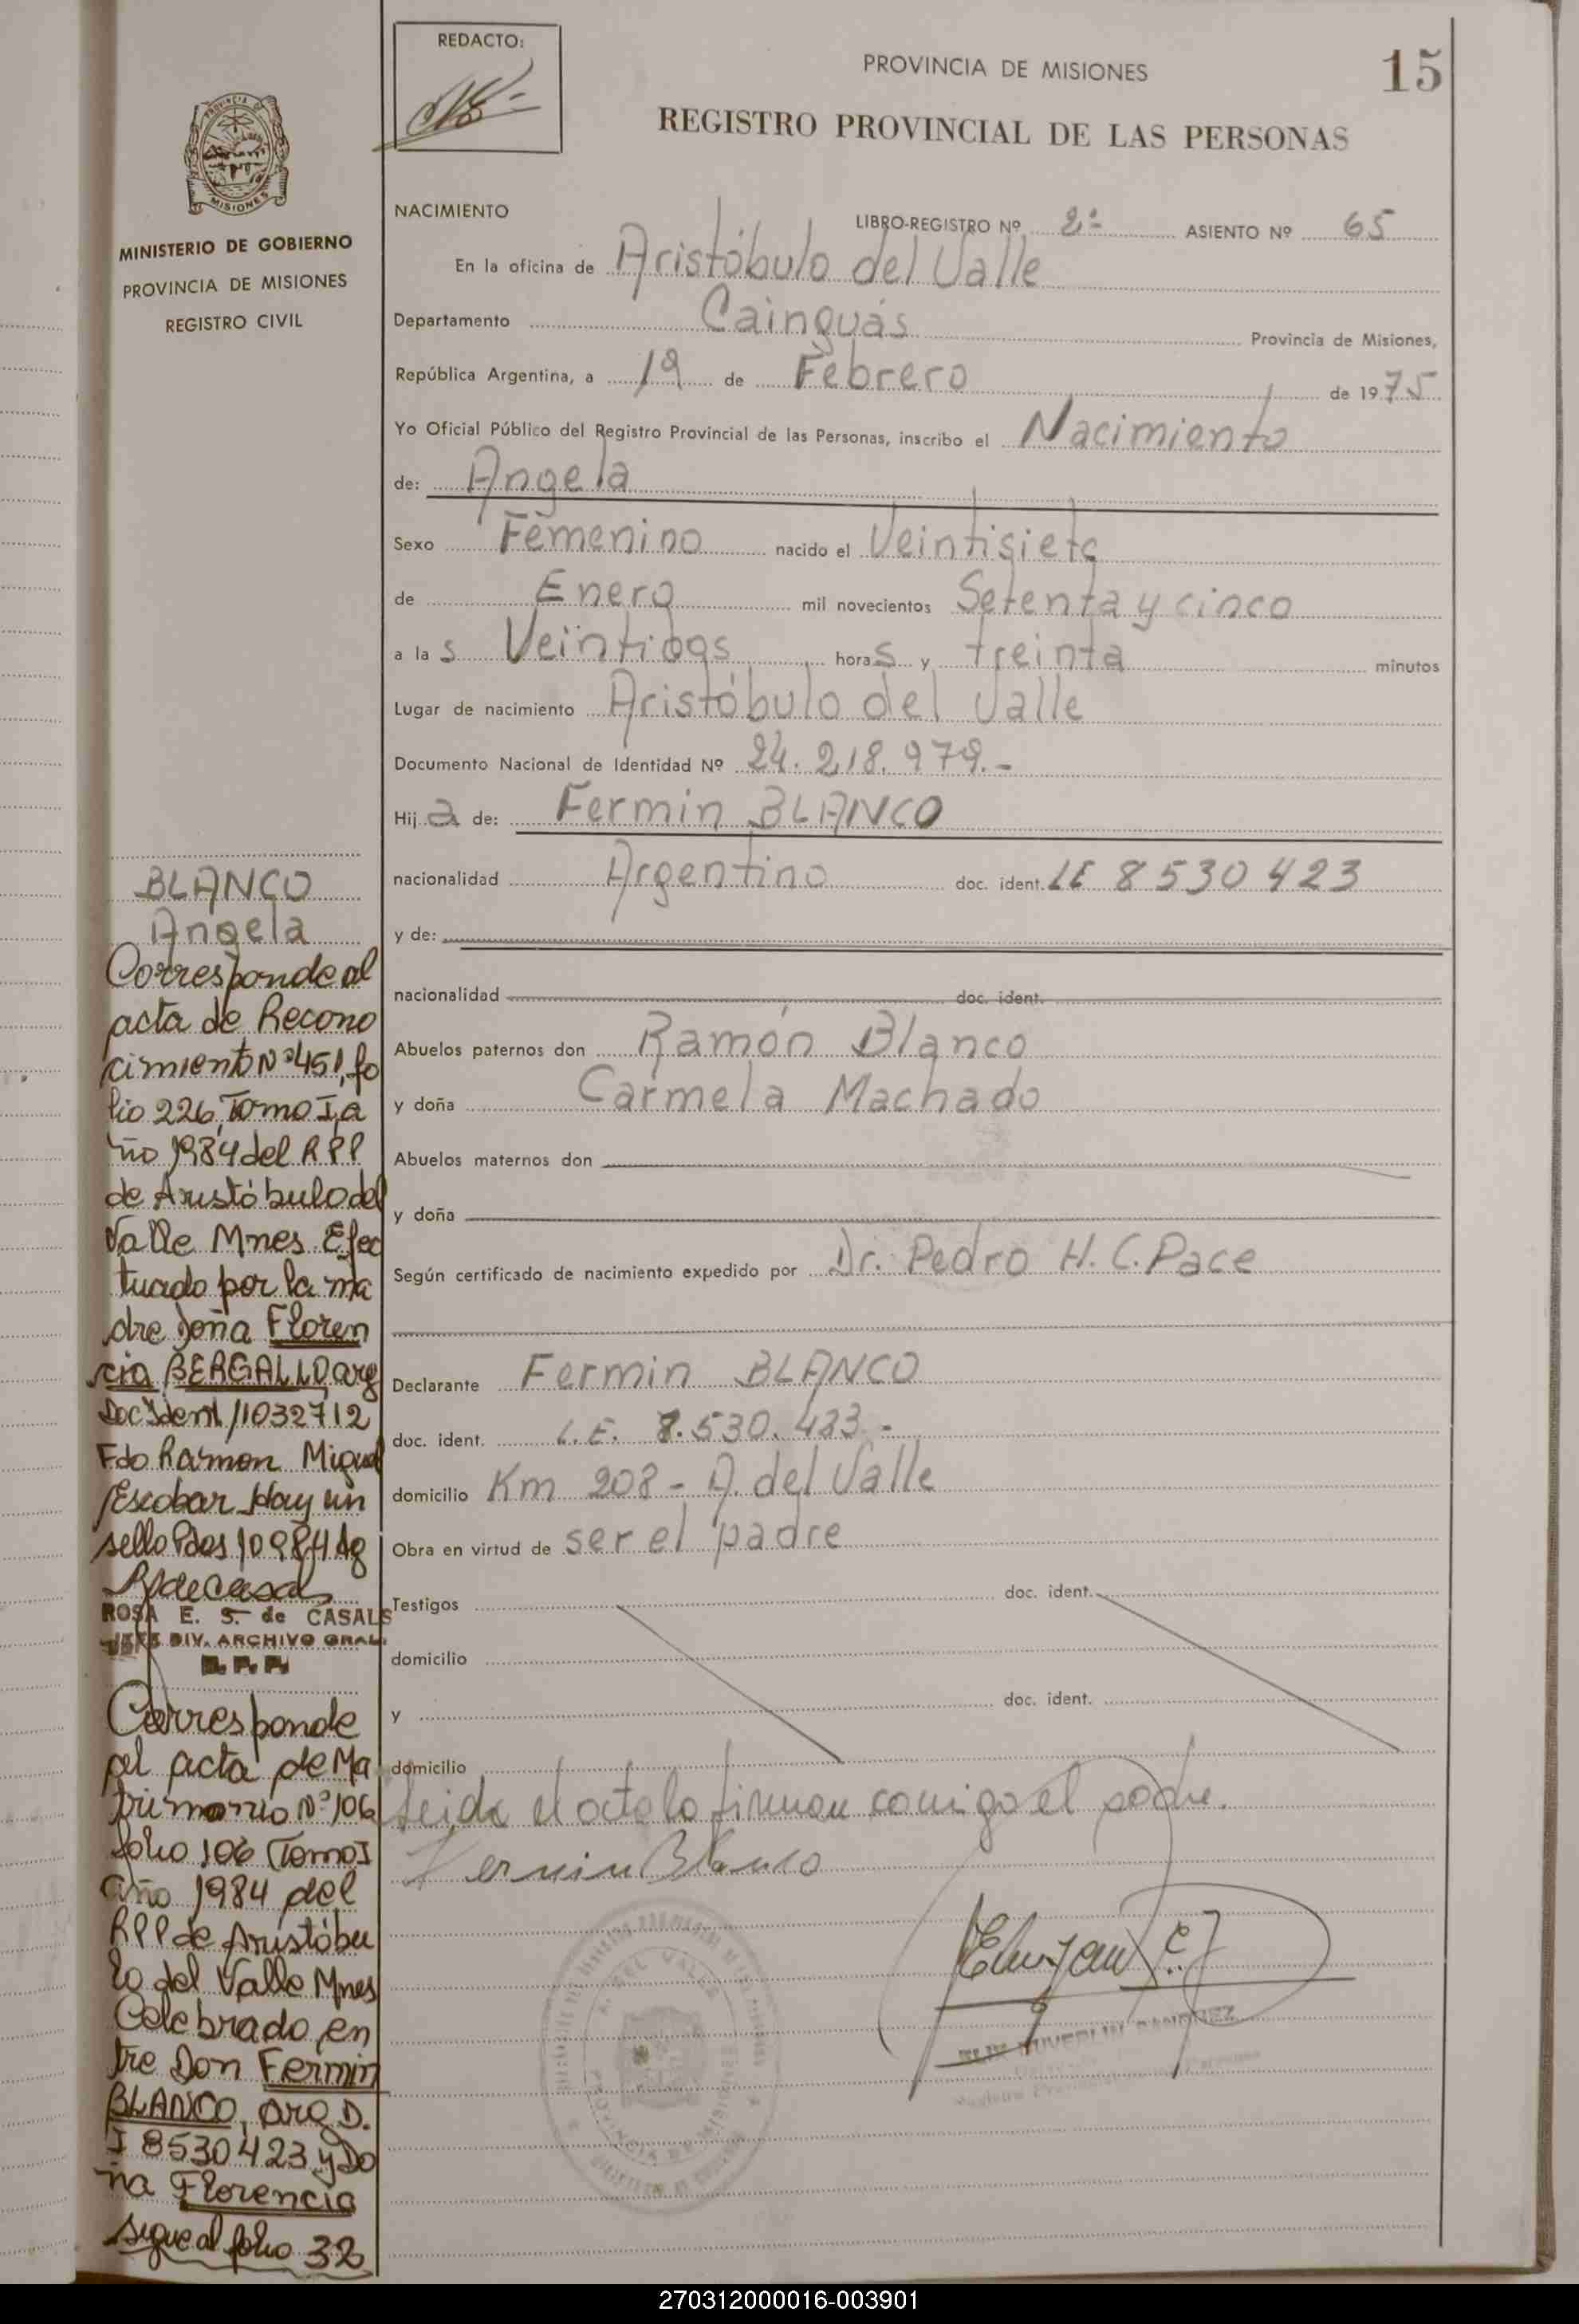 REDACTO:
PROVINCIA DE MISIONES
15
REGISTRO PROVINCIAL DE LAS PERSONAS
PROVINCIA DE
MISIONES
MINISTERIO DE GOBIERNO
PROVINCIA DE MISIONES
REGISTRO CIVIL
NACIMIENTO
LIBRO-REGISTRO Nº 2º ASIENTO Nº 65
En la oficina de Aristóbulo del Valle
Departamento Cainguás Provincia de Misiones,
República Argentina, a 19 de Febrero de 1975
Yo Oficial Público del Registro Provincial de las Personas, inscribo el Nacimiento
de: Angela
Sexo Femenino nacido el Veintisiete
de Enero mil novecientos Setenta y cinco
a la s Veintidos hora s y treinta minutos
Lugar de nacimiento Aristóbulo del Valle
Documento Nacional de Identidad Nº 24.218.979.-
Hij a de: Fermin BLANCO
nacionalidad Argentino doc. ident. LE 8530423
y de:
nacionalidad doc. ident.
Abuelos paternos don Ramón Blanco
y doña Carmela Machado
Abuelos maternos don
y doña
Según certificado de nacimiento expedido por Dr. Pedro H. C. Pace
Declarante Fermin BLANCO
doc. ident. L.E. 8.530.423.-
domicilio Km 208 - A. del Valle
Obra en virtud de ser el padre
Testigos doc. ident.
domicilio
y doc. ident.
domicilio
Leida el acta la firman conmigo el padre.
Fermin Blanco
BLANCO
Angela
Corresponde al
acta de Recono
cimiento Nº 451, fo
lio 226, Tomo I, a
ño 1984 del RPP
de Aristóbulo del
Valle Mnes. Efec
tuado por la ma
dre Doña Floren
cia BERGALLO arg
Doc Ident 11032712
Fdo Ramon Miguel
Escobar Hay un
sello Pdas
ROSA E. S. de CASALS
JEFE DIV. ARCHIVO GRAL.
R. P. P.
Corresponde
al acta de Ma
trimonio Nº 106
folio 106 Tomo I
año 1984 del
RPP de Aristóbu
lo del Valle Mnes
Celebrado en
tre Don Fermin
BLANCO, arg D.
I 8530423 y Do
ña Florencia
sigue al folio 32
270312000016-003901